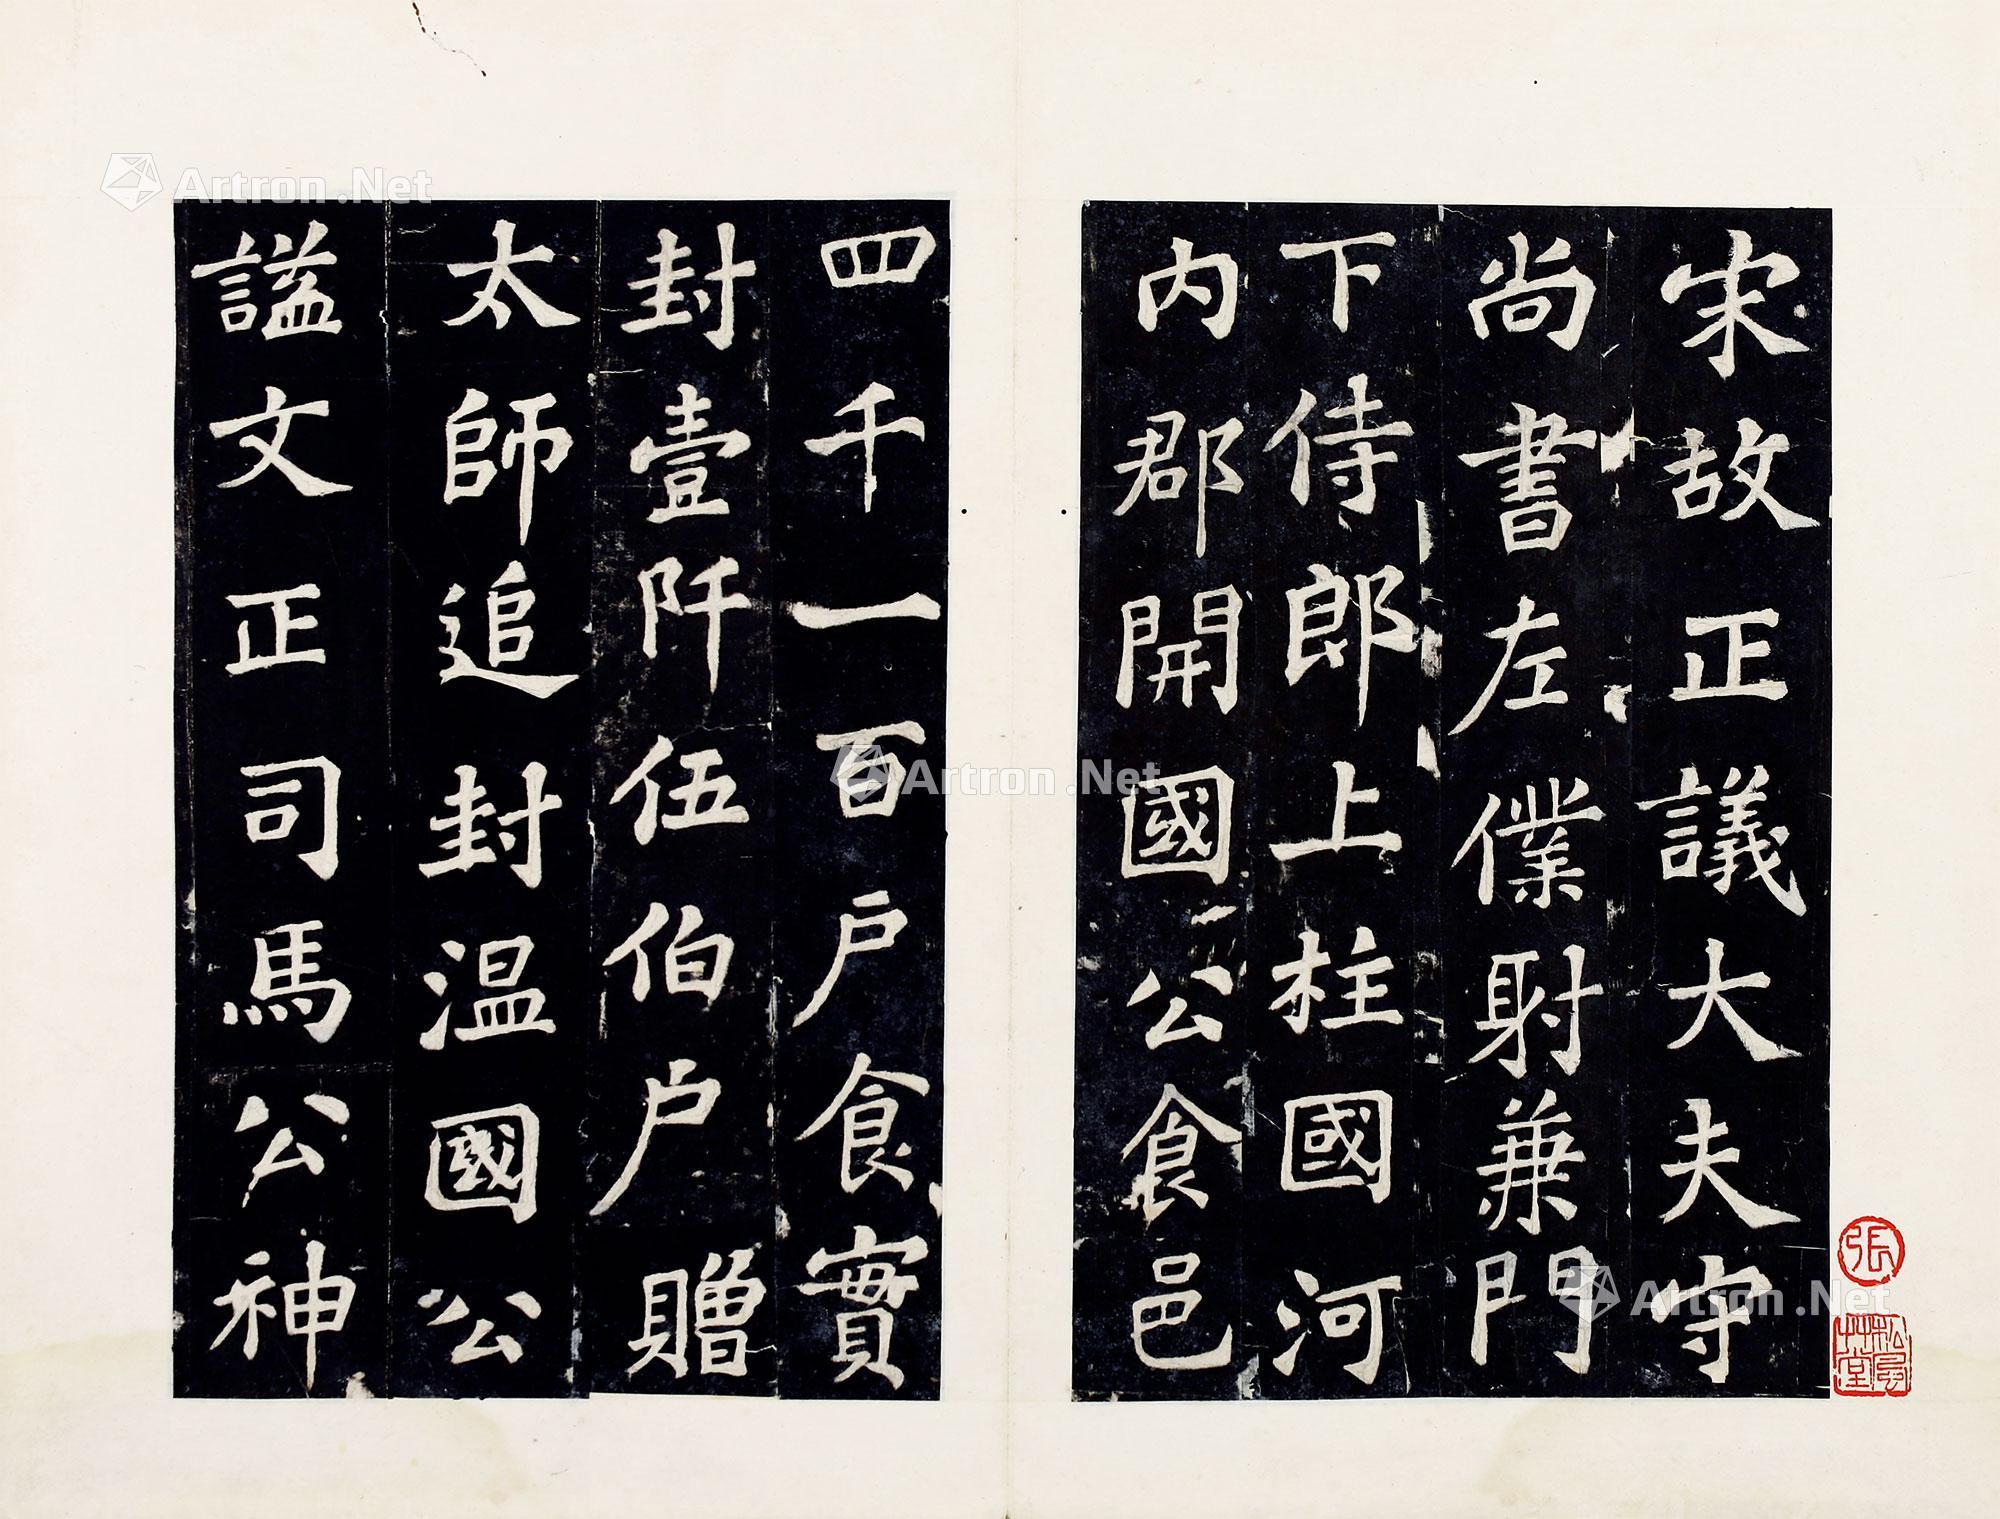 宋故正議大夫守
尚書左僕射兼門
下侍郎上柱國河
内郡開國公食邑
四千一百户食實
封壹阡伍伯户贈
太師追封温國公
謚文正司馬公神
張
Artron.Net
Artron.Net
Artron.Net